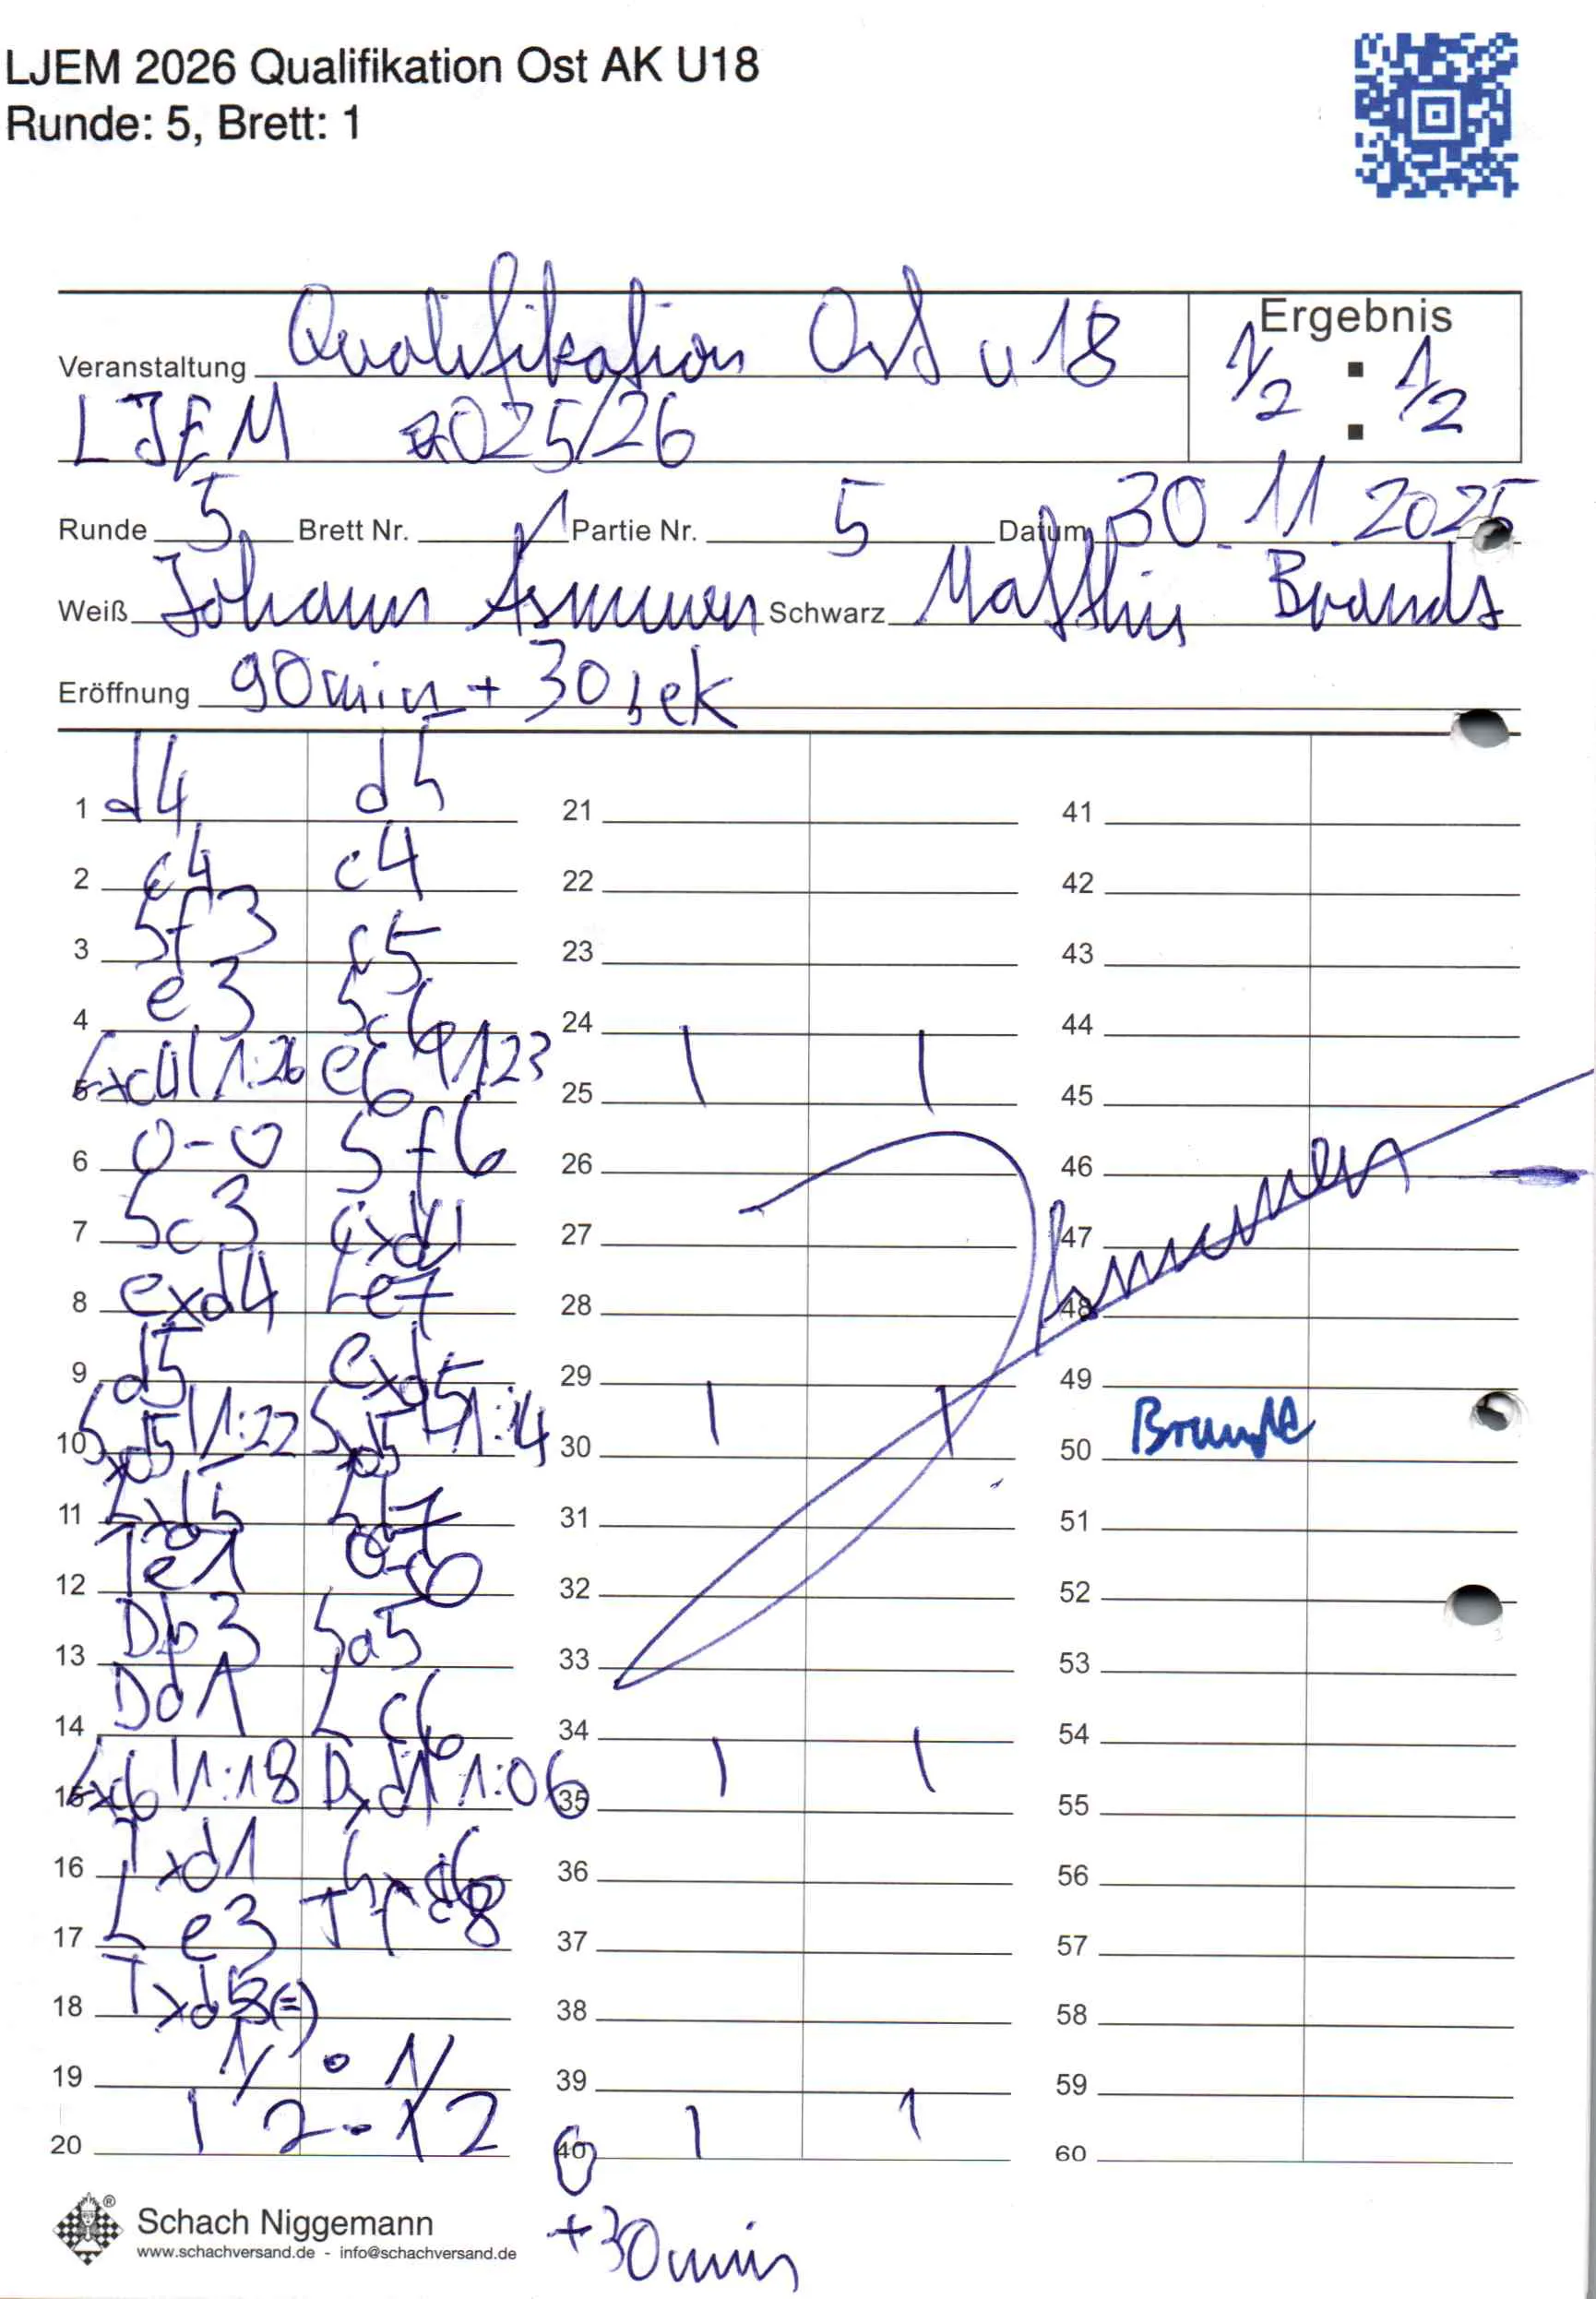 LJEM 2026 Qualifikation Ost AK U18
Runde: 5, Brett: 1
Ergebnis
Veranstaltung Qualifikation Ost u18
LJEM 2025/26
1/2 : 1/2
Runde 5 Brett Nr. 1 Partie Nr. 5 Datum 30.11.2025
Weiß Johann Asmussen Schwarz Matthis Brandt
Eröffnung 90min + 30sek
1 d4 d5 21 41
2 c4 c4 22 42
3 Sf3 c5 23 43
4 e3 Sc6 24 44
5 Lxc4 | 1:26 e6 1:23 25 45
6 0-0 Sf6 26 46
7 Sc3 cxd4 27 47
8 exd4 Le7 28 48
9 d5 exd5 29 49
10 Sxd5 | 1:22 Sxd5 1:14 30 50
11 Lxd5 Ld7 31 51
12 Te1 0-0 32 52
13 Db3 Sa5 33 53
14 Dd1 Lc6 34 54
15 Lxc6 | 1:18 Dxd1 1:06 35 55
16 Txd1 Sxc6 36 56
17 Le3 Tfd8 37 57
18 Txd8 (=) 38 58
19 39 59
20 40 60
1/2 - 1/2
Asmussen
Brandt
+30min
Schach Niggemann
www.schachversand.de - info@schachversand.de